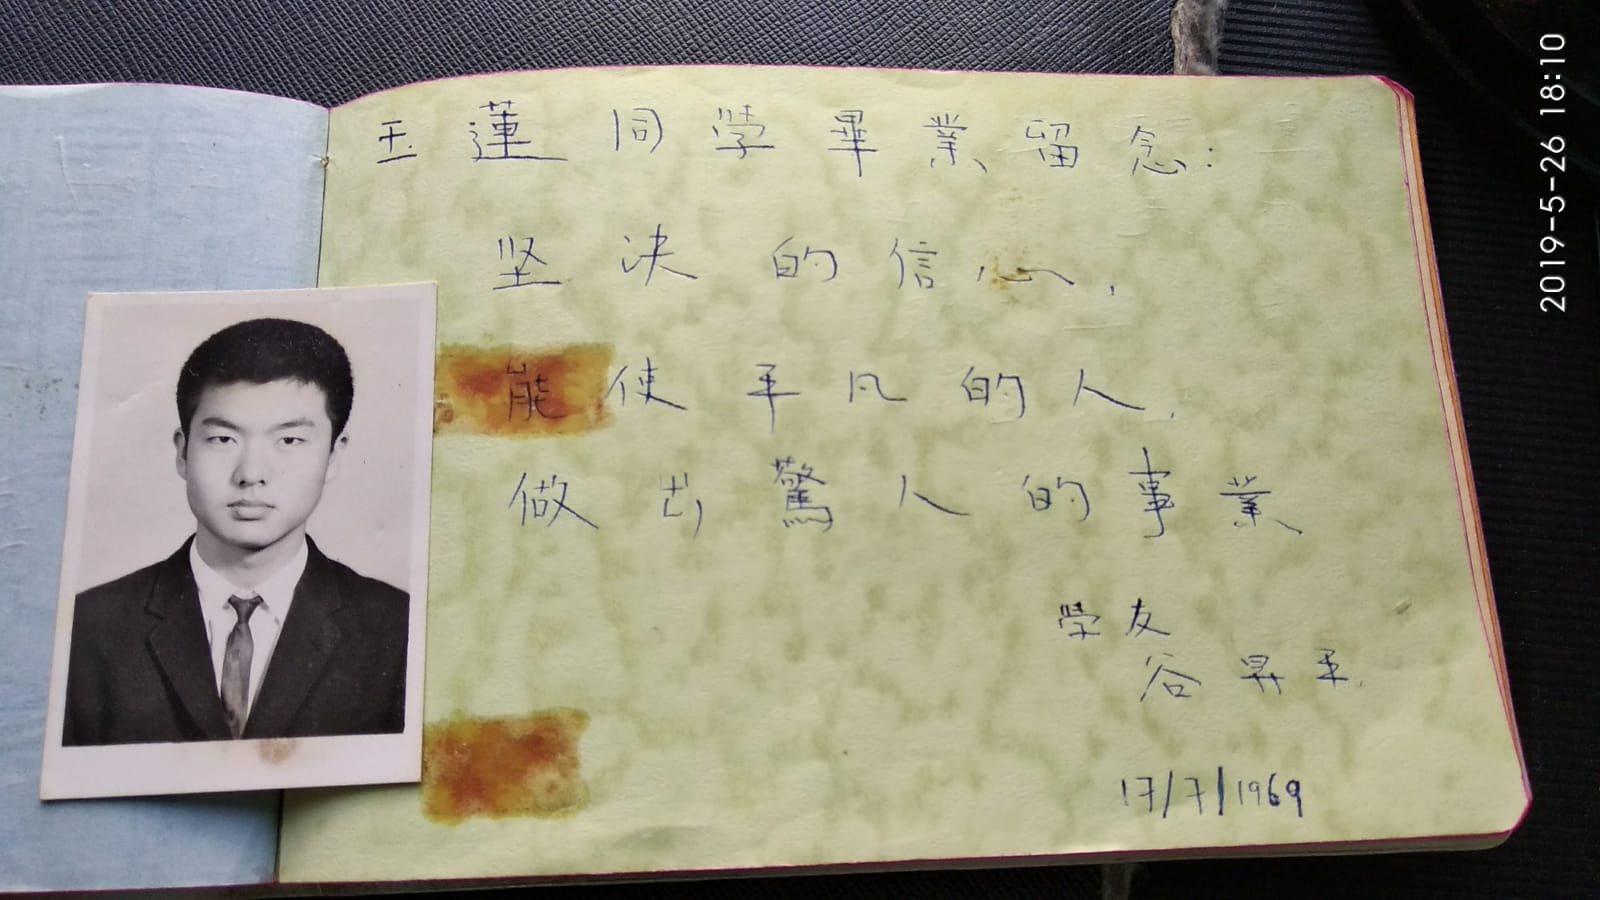 玉蓮同學畢業留念:
坚决的信心,
能使平凡的人,
做出驚人的事業
學友
谷昇平.
17/7/1969
2019-5-26 18:10